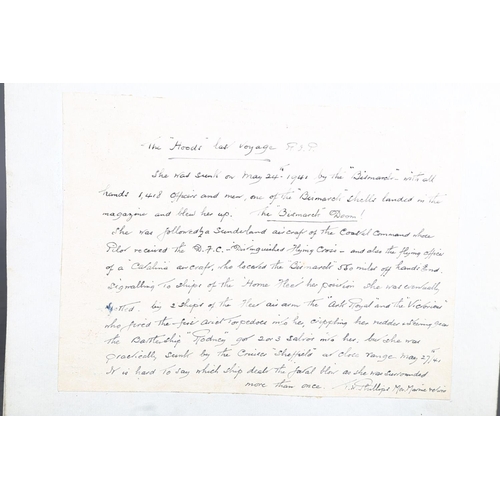 The "Hoods" last voyage R.I.P.
She was sunk on May 24th 1941 by the "Bismarck" with all
hands 1,418 Officers and men, one of the "Bismarck" shells landed in the
magazine and blew her up. The "Bismarck" Doom!
She was followed by a Sunderland aircraft of the Coastal Command whose
Pilot received the D.F.C. - Distinguished Flying Cross - and also the flying officer
of a "Catalina" aircraft, who located the Bismarck 550 miles off Lands End.
Signalling to ships of the "Home Fleet" her position she was eventually
by 2 ships of the Fleet air arm the "Ark Royal and the Victorious"
who, fired the first Ariel Torpedoes into her, crippling her rudder + steering gear
the Battleship "Rodney" got 2 or 3 salvos into her, but she was
practically sunk by the Cruiser "Sheffield" at close range May 27th 41
It is hard to say which ship dealt the fatal blow as she was surrounded
more than once. Phillips